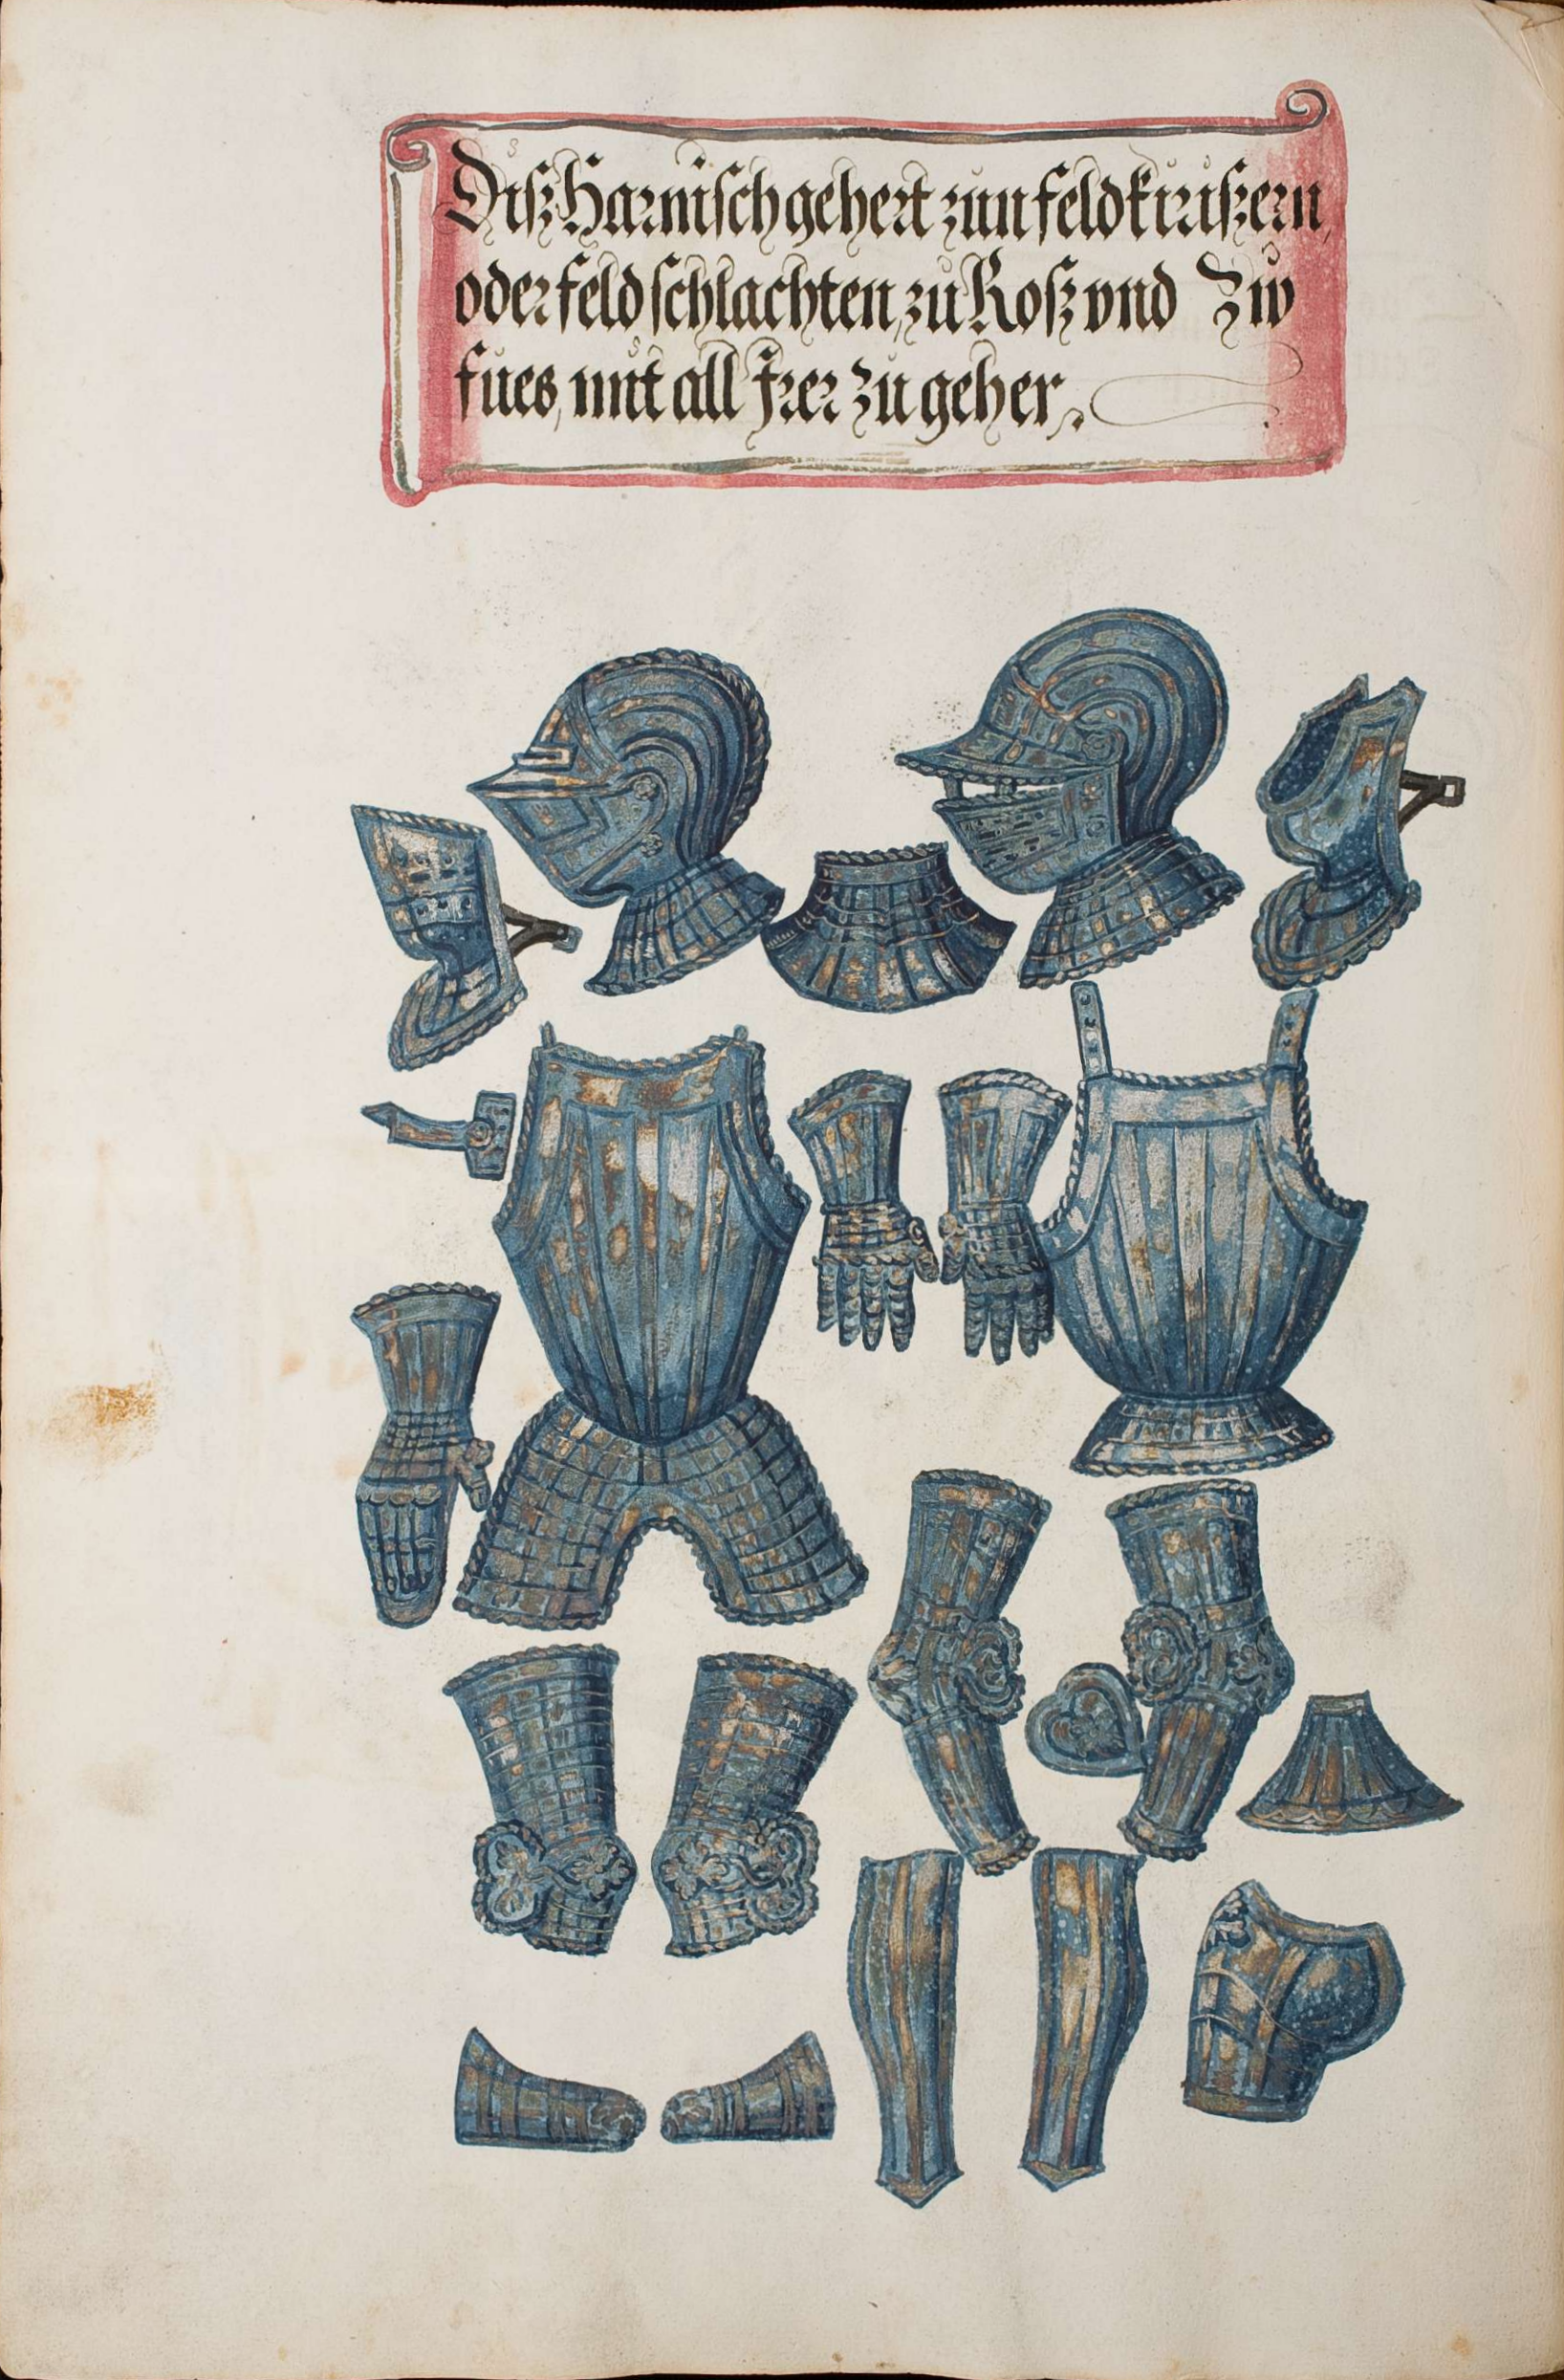 Disz Harnisch gehert zun feldkiriszern,
oder feldschlachten, zů Rosz vnd Zůo
fues, mit all Irer zu geher.